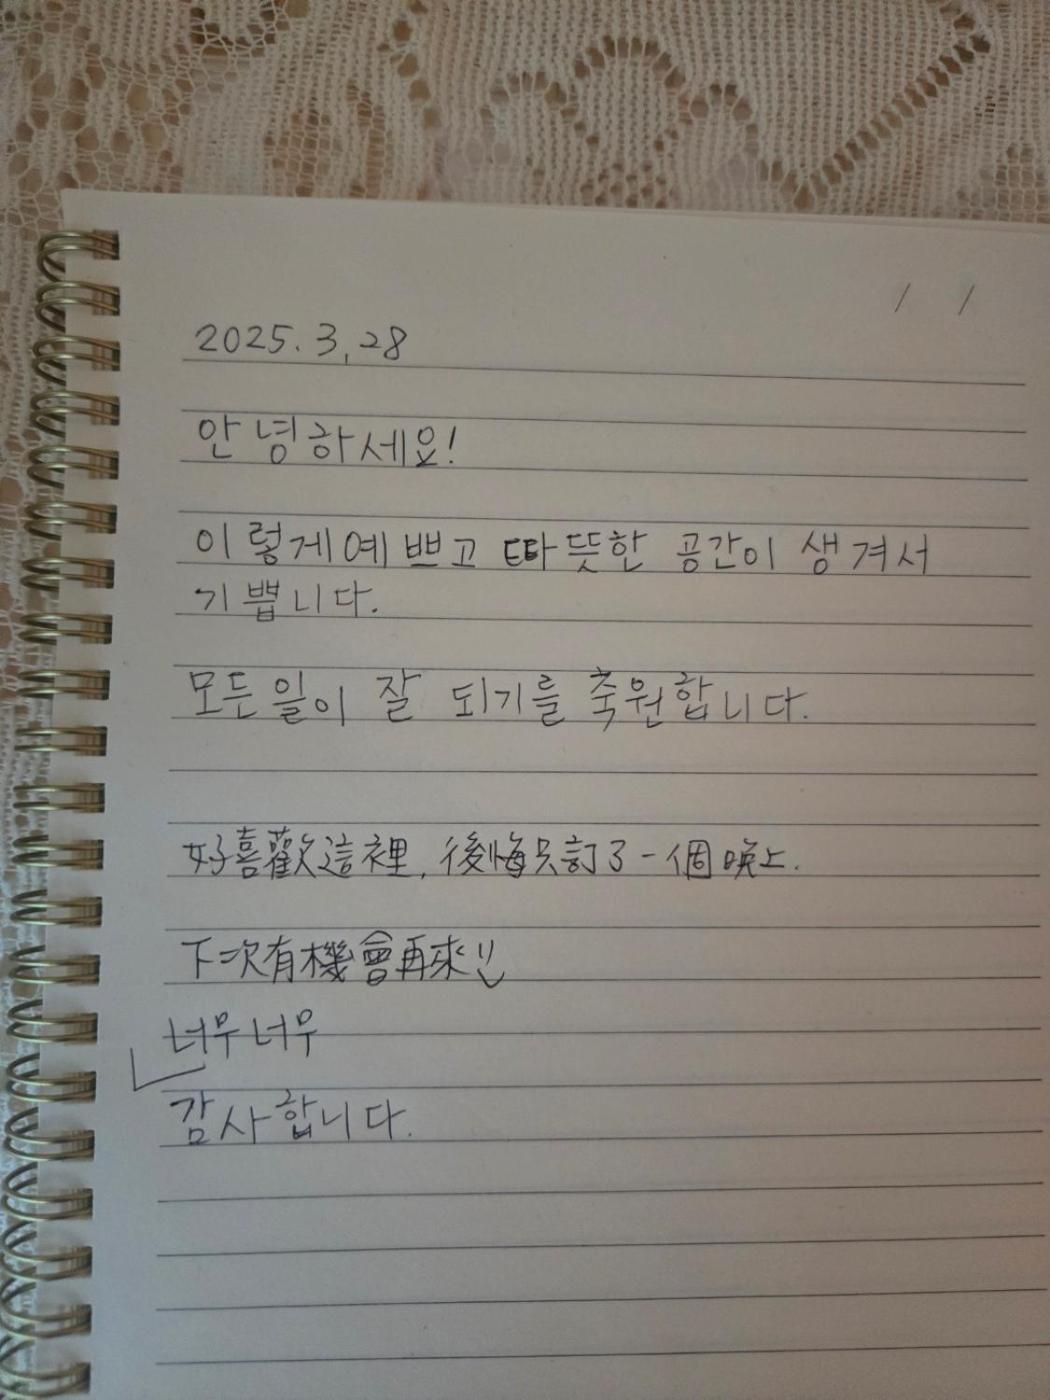 2025.3.28
안녕하세요!
이렇게 예쁘고 따뜻한 공간이 생겨서
기쁩니다.
모든 일이 잘 되기를 축원합니다.
好喜歡這裡，後悔只訂了一個晚上.
下次有機會再來
너무너무
감사합니다.